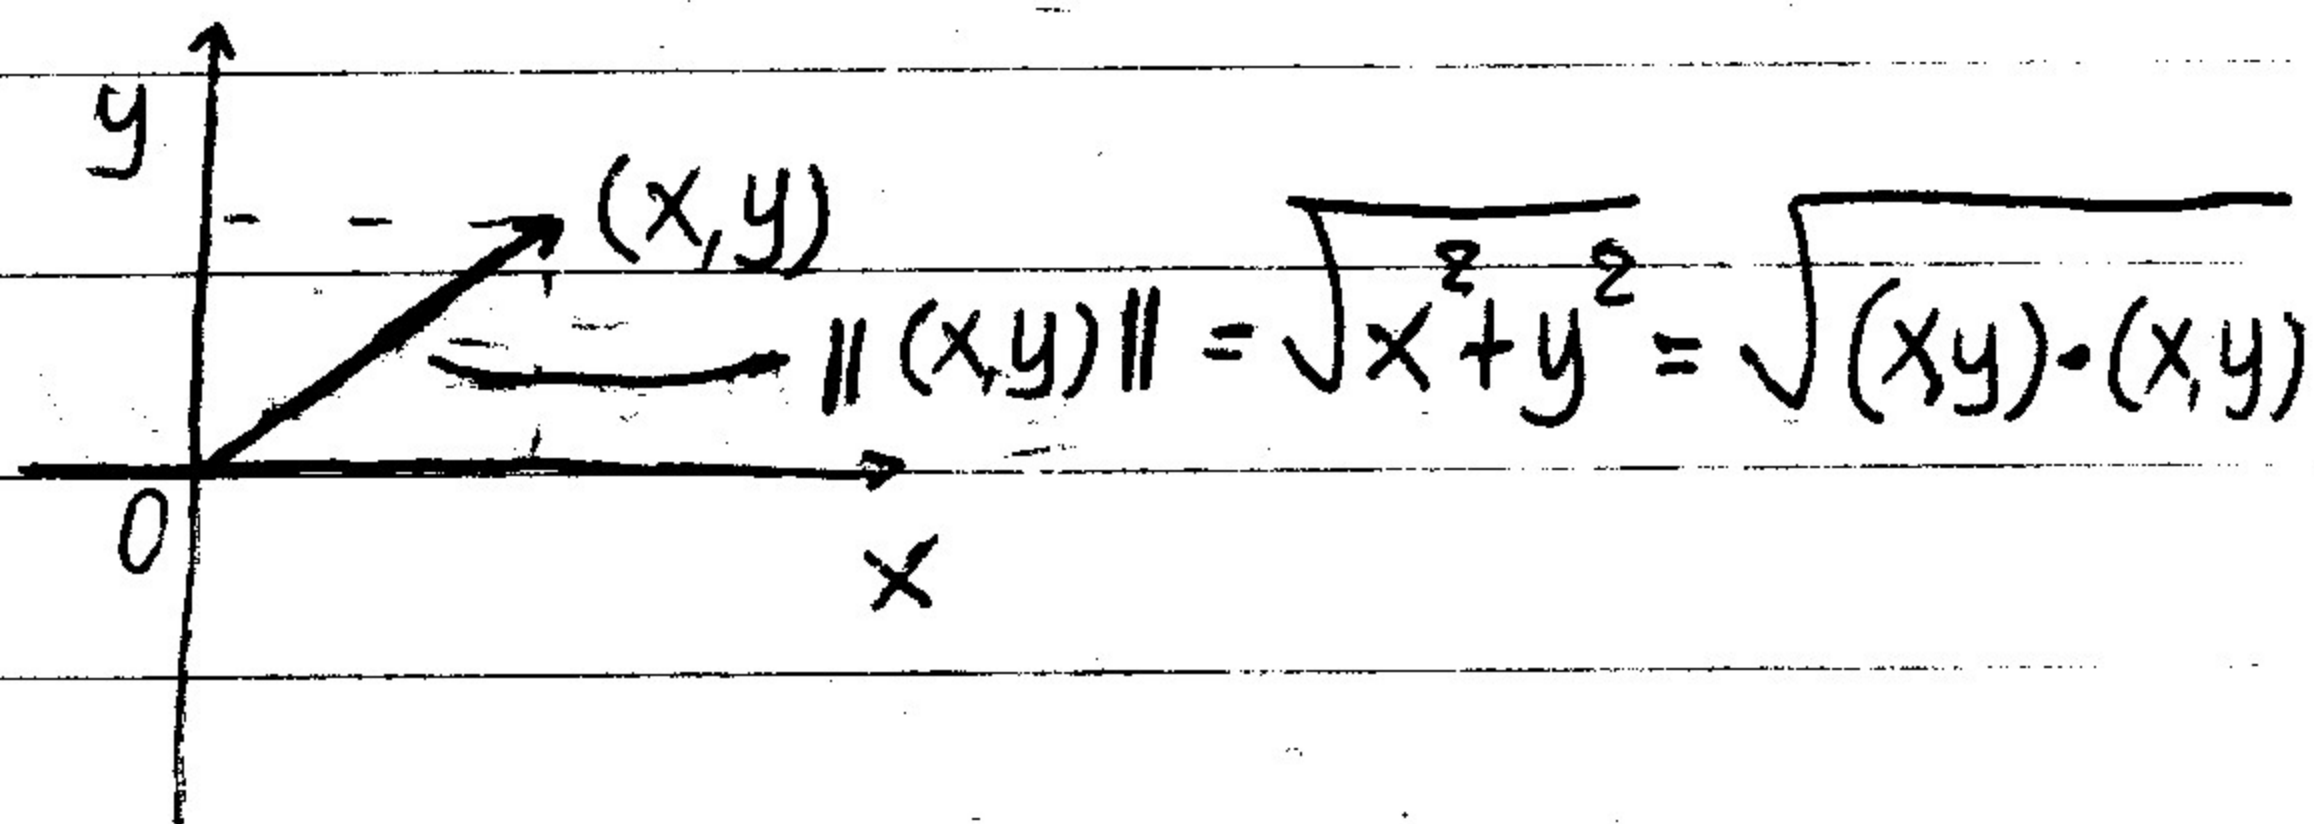 y
(x,y)
‖(x,y)‖ = √x²+y² = √(x,y)·(x,y)
0
x